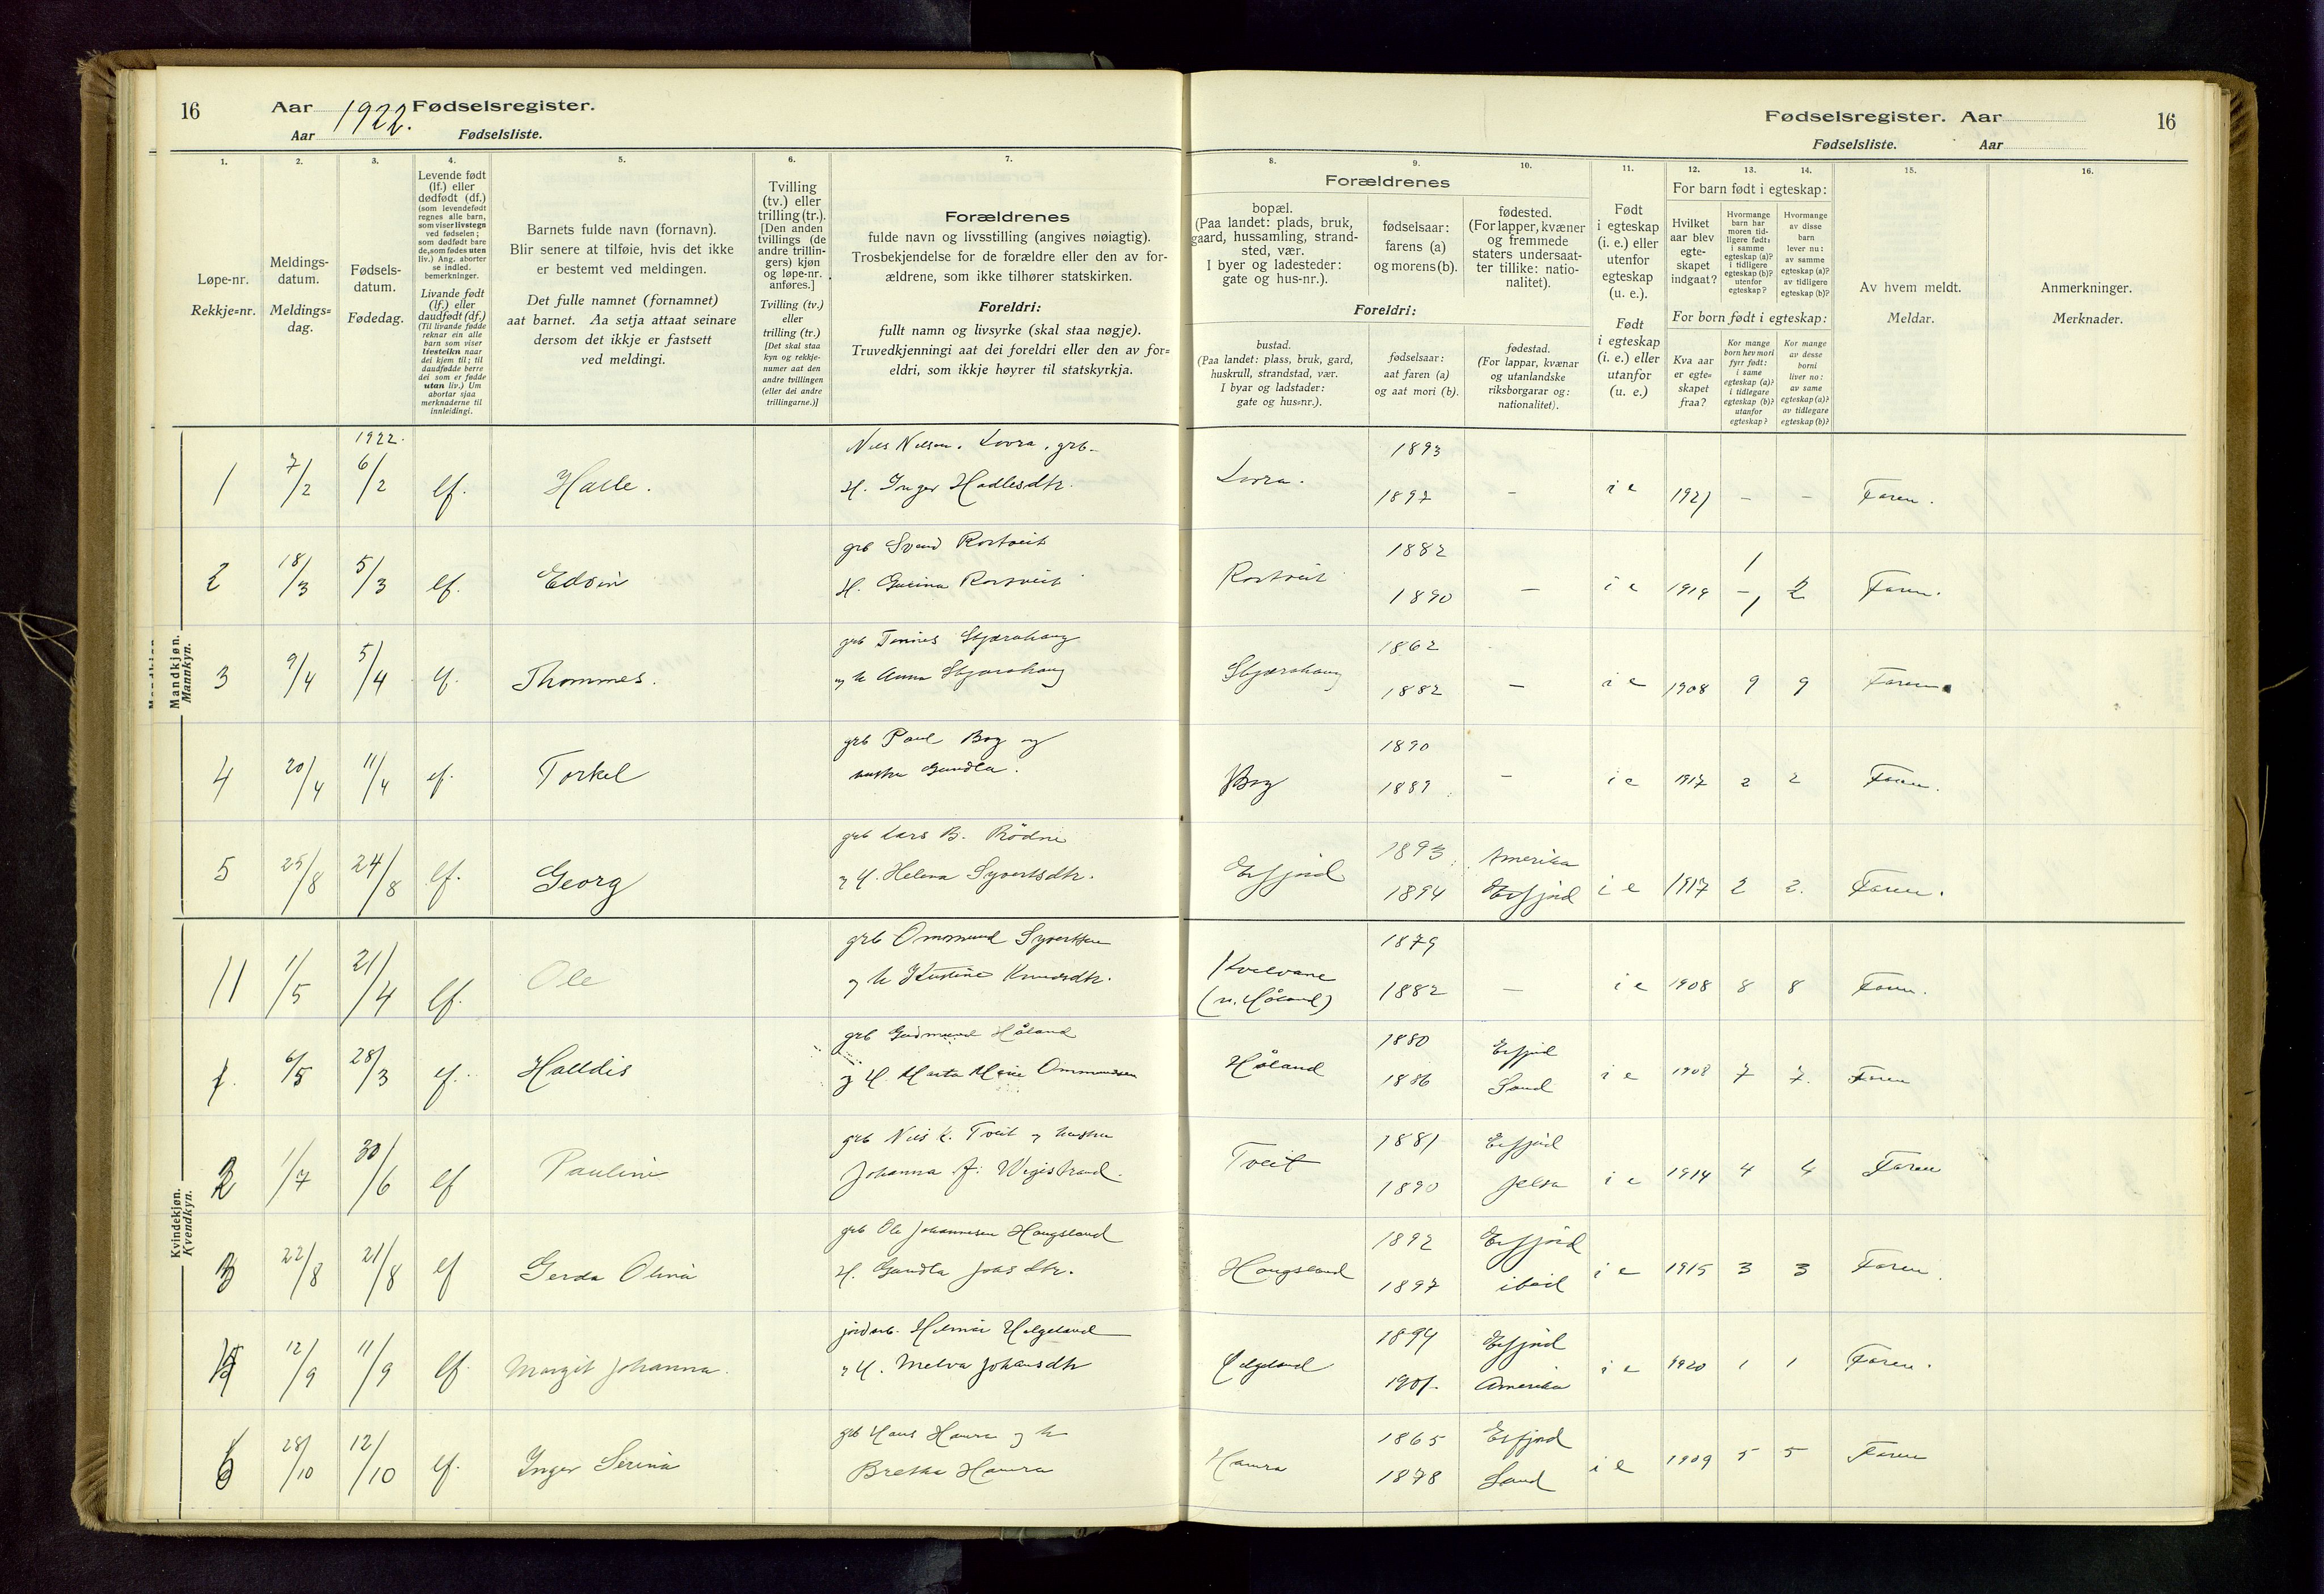 16
Aar 1922. Fødselsregister.
Aar Fødselsliste.
Fødselsregister. Aar
Fødselsliste. Aar
16
1.
Løpe-nr.
Rekkje=nr.
2.
Meldings-
datum.
Meldings=
dag.
3.
Fødsels-
datum.
Fødedag.
4.
Levende født
(lf.) eller
dødfødt (df.)
(som levendefødt
regnes alle barn,
som viser livstegn
ved fødselen;
som dødfødt bare
de, som fødes uten
liv.) Ang. aborter
se indled.
bemerkninger.
Livande født
(lf.) eller
daudfødt (df.)
(Til livande fødde
reknar ein alle
barn som viser
livsteikn naar
dei kjem til; til
daudfødde berre
dei som er fødde
utan liv.) Um
abortar sjaa
merknaderne til
innleidingi.
5.
Barnets fulde navn (fornavn).
Blir senere at tilføie, hvis det ikke
er bestemt ved meldingen.
Det fulle namnet (fornamnet)
aat barnet. Aa setja attaat seinare
dersom det ikkje er fastsett
ved meldingi.
6.
Tvilling
(tv.) eller
trilling (tr.).
[Den anden
tvillings (de
andre trillin-
gers) kjøn
og løpe-nr.
anføres.]
Tvilling (tv.)
eller
trilling (tr.)
[Det skal staa
kyn og rekkje-
numer aat den
andre tvillingen
(eller dei andre
trillingarne.)]
7.
Forældrenes
fulde navn og livsstilling (angives nøiagtig).
Trosbekjendelse for de forældre eller den av for-
ældrene, som ikke tilhører statskirken.
Foreldri:
fullt namn og livsyrke (skal staa nøgje).
Truvedkjenningi aat dei foreldri eller den av for=
eldri, som ikkje høyrer til statskyrkja.
8.
Forældrenes
bopæl.
(Paa landet: plads, bruk,
gaard, hussamling, strand-
sted, vær.
I byer og ladesteder:
gate og hus-nr.).
Foreldri:
bustad.
(Paa landet: plass, bruk, gard,
huskrull, strandstad, vær.
I byar og ladstader:
gate og hus=nr.).
9.
fødselsaar:
farens (a)
og morens (b).
fødselsaar:
aat faren (a)
og aat mori (b).
10.
fødested.
(For lapper, kvæner
og fremmede
staters undersaat-
ter tillike: natio-
nalitet).
fødestad.
(For lappar, kvænar
og utanlandske
riksborgarar og:
nationalitet).
11.
Født
i egteskap
(i. e.) eller
utenfor
egteskap
(u. e.).
Født
i egteskap
(i. e.) eller
utanfor
(u. e.)
12.
13.
14.
For barn født i egteskap:
Hvilket
aar blev
egte-
skapet
indgaat?
Hvormange
barn har
moren tid-
ligere født:
i samme
egteskap (a)?
i tidligere
egteskap (b)?
utenfor
egteskap?
Hvormange
av disse
barn
lever nu:
av samme
egteskap (a)?
av tidligere
egteskap (b)?
For born født i egteskap:
Kva aar
er egte=
skapet
fraa?
Kor mange
born hev mori
fyrr født:
i same
egteskap (a)?
i tidlegare
egteskap (b)?
utanfor
egteskap?
Kor mange
av desse
borni
liver no:
av same
egteskap (a)?
av tidlegare
egteskap (b)?
15.
Av hvem meldt.
Meldar.
16.
Anmerkninger.
Merknader.
Mandkjøn.
Mannkyn.
1922.
1 7/2 6/2 lf. Halle. Nils Nilsen. Lovra, grb. Lovra. 1893
H. Inger Hadlesdtr. 1897 – i e 1921 – – Faren.
2 18/3 5/3 lf. Edvin grb Svend Rortveit Rortveit 1882 1
H. Gurina Rortveit 1890 – i e 1914 – 1 2 Faren.
3 9/4 5/4 lf. Thommes. grb Tønnes Skjærahaug Skjærahaug 1862
og h Anna Skjærahaug 1882 – i e 1908 9 9 Faren
4 20/4 11/4 lf. Torkel grb Paul Bog og Bog 1890
hustru Gundla. 1889 – i e 1917 2 2 Faren.
5 25/8 24/8 lf. Georg grb Lars B. Rödne Erfjord 1893 Amerika
og H. Helena Syvertsdtr. 1894 Erfjord i e 1917 2 2. Faren.
11 1/5 21/4 lf. Ole grb Ommund Syvertsen Kvelvane 1879
og h Kristine Knudsdtr. (n. Håland) 1882 – i e 1908 8 8 Faren.
Kvindekjøn.
Kvendkyn.
1. 6/5 28/3 lf. Halldis grb Gudmund Håland Håland 1880 Erfjord
og H. Marta Marie Ommundsen 1886 Sand i e 1908 7 7. Faren
2 1/7 30/6 lf Pauline grb Nils K. Tveit og hustru Tveit 1881 Erfjord
Johanna J. Wigistrand. 1890 Jelsa i e 1914 4 4 Faren
3 22/8 21/8 lf Gerda Olina grb Ole Johannesen Haugsland Haugsland 1892 Erfjord
H. Gundla Johsdtr. 1897 ibid i e 1915 3 3 Faren.
4 12/9 11/9 lf. Margit Johanna. jordarb. Hilmar Helgeland Helgeland 1894 Erfjord
og H. Melva Johansdtr 1901. Amerika i e 1920 1 1 Faren.
6 28/10 12/10 lf. Inger Serina grb Hans Hamra og h Hamra 1865 Erfjord
Bretha Hamra 1878 Sand i e 1909 5 5 Faren